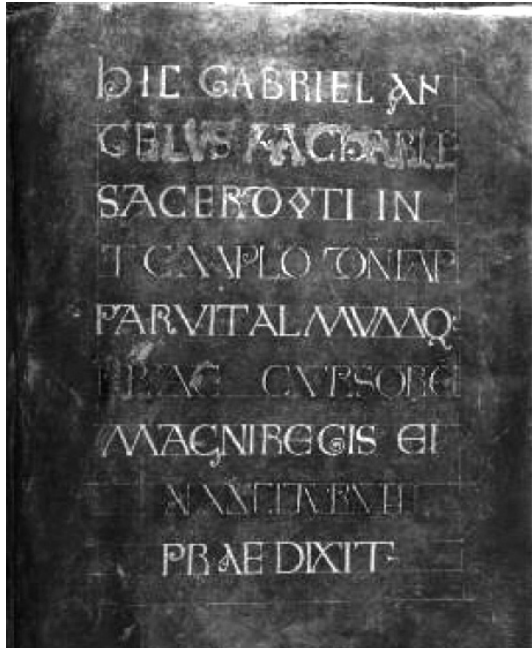 HIC GABRIEL AN
GELVS ZACHARIE
SACERDOTI IN
TEMPLO DNI AP
PARVIT ALMVMQ:
PRAE CVRSORE
MAGNI REGIS EI
NASCITVRVM
PRAEDIXIT·